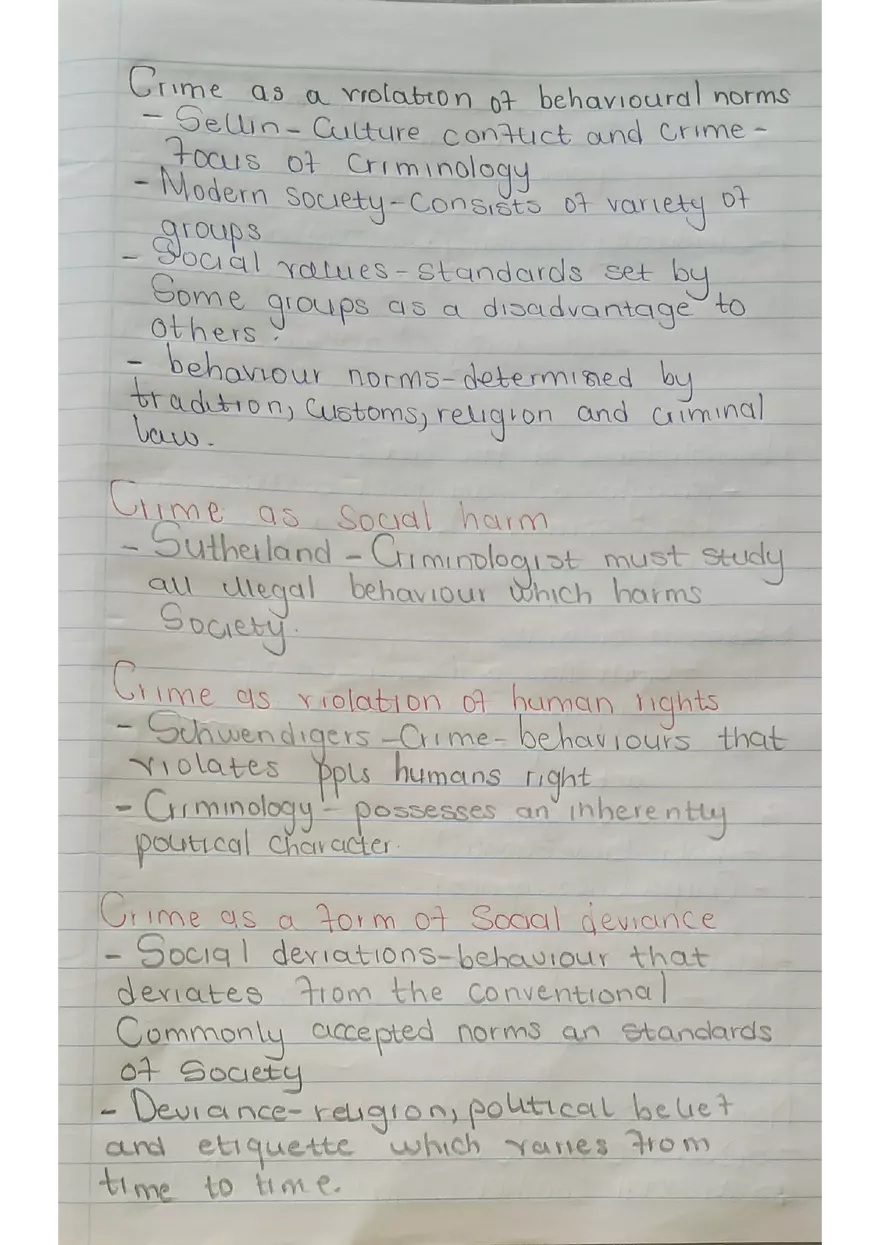 Crime as a violation of behavioural norms
- Sellin - Culture conflict and crime -
focus of Criminology
- Modern society - Consists of variety of
groups
- Social values - standards set by
Some groups as a disadvantage to
others.
- behaviour norms - determined by
tradition, customs, religion and criminal
law.
Crime as Social harm
- Sutherland - Criminologist must study
all illegal behaviour which harms
Society.
Crime as violation of human rights
- Schwendigers - Crime - behaviours that
violates ppls humans right
- Criminology - possesses an inherently
political character.
Crime as a form of Social deviance
- Social deviations - behaviour that
deviates from the conventional
Commonly accepted norms an standards
of Society
- Deviance - religion, political belief
and etiquette which varies from
time to time.